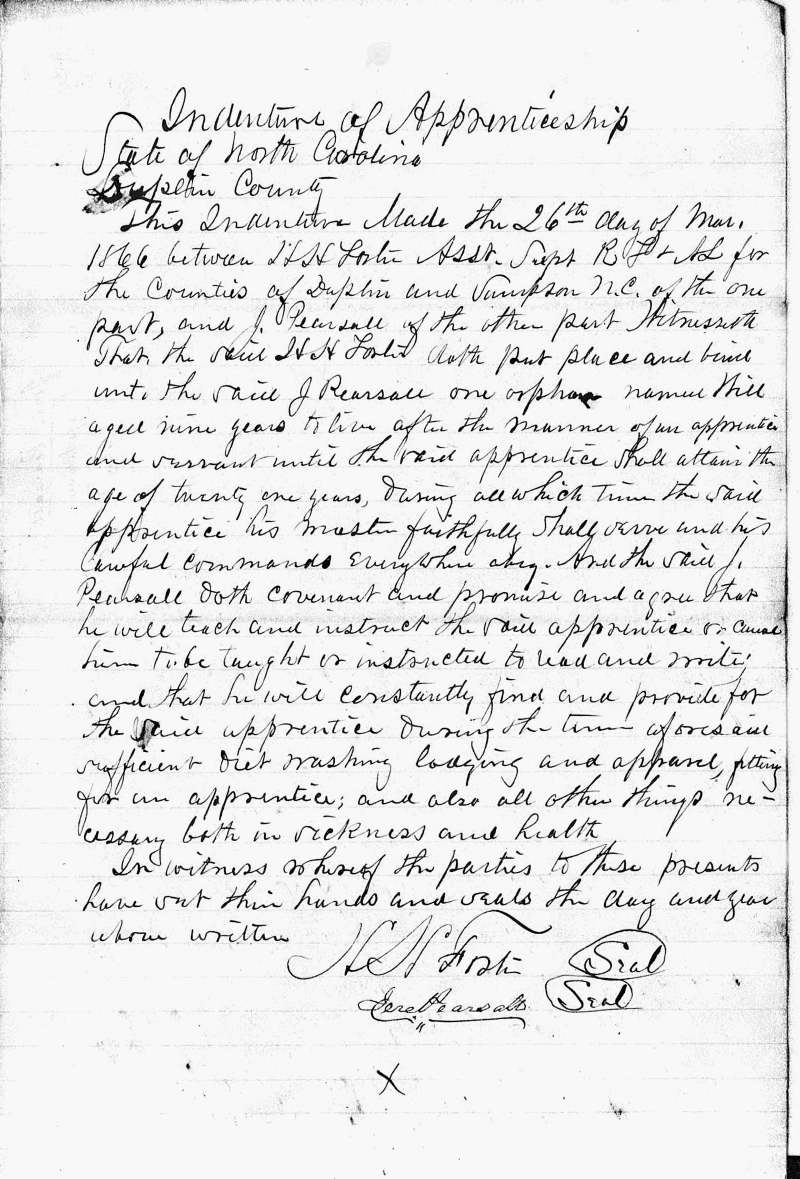 Indenture of Apprenticeship
State of North Carolina
Duplin County
This Indenture Made the 26th day of Mar.
1866 between H H Foster Asst. Supt R F & AL for
the Counties of Duplin and Sampson N.C. of the one
part, and J. Pearsall of the other part Witnesseth
That the said H H Foster doth put place and bind
unto the said J Pearsall one orphan named Will
aged nine years to live after the manner of an apprentice
and servant until the said apprentice shall attain the
age of twenty one years, During all which time the said
apprentice his master faithfully shall serve and his
lawful commands everywhere obey. And the said J.
Pearsall doth covenant and promise and agree that
he will teach and instruct the said apprentice or cause
him to be taught or instructed to read and write;
and that he will constantly find and provide for
the said apprentice during the time aforesaid
sufficient diet washing lodging and apparel, fitting
for an apprentice; and also all other things ne-
cessary both in sickness and health
In witness whereof the parties to these presents
have set their hands and seals the day and year
above written
H H Foster Seal
Jere Pearsall Seal
X